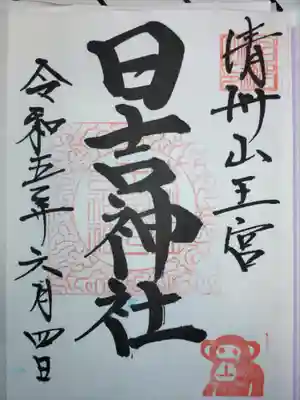 清州山王宮
日吉神社
令和五年六月四日